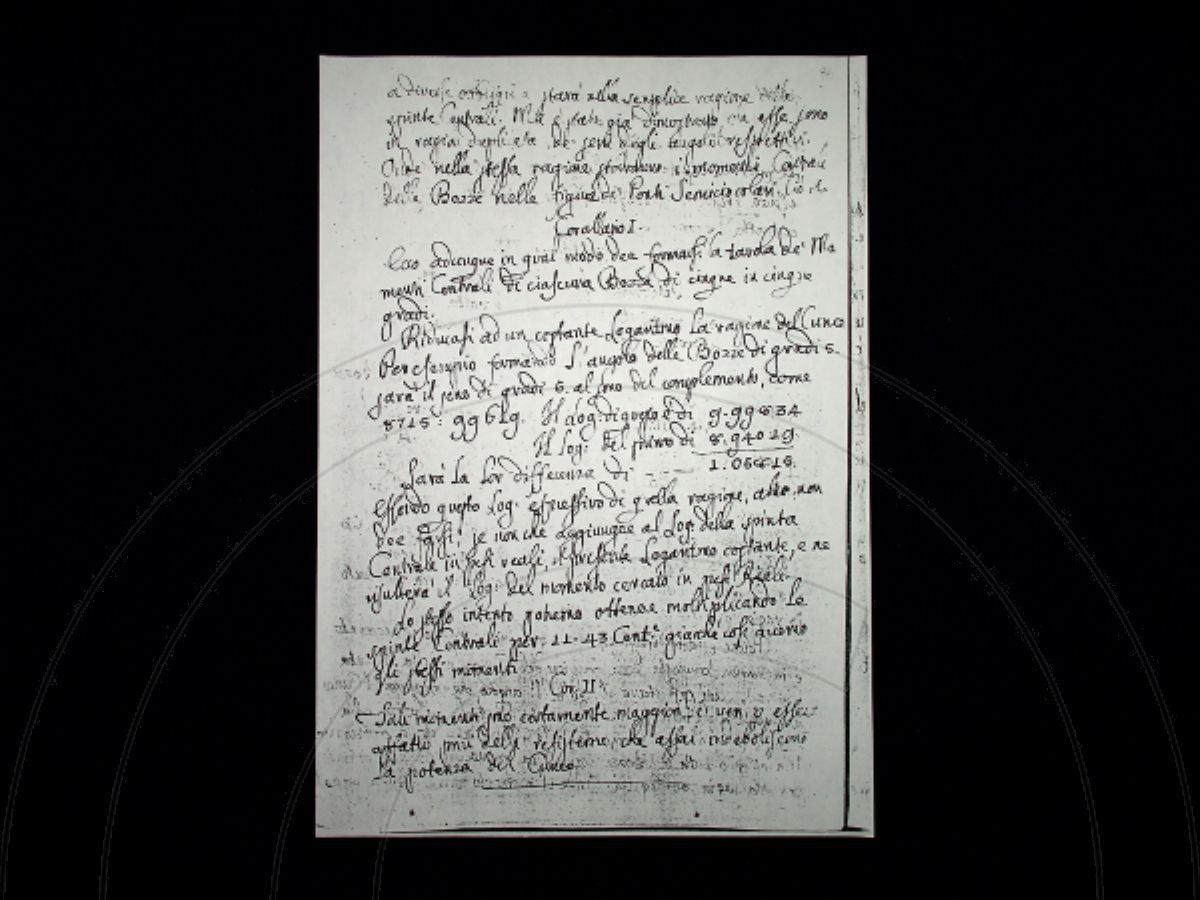 a diverse stará alla semplice ragione delle
spinte Centrali. Ma è stato già dimostrato esse sono
in ragion duplicata de' seni degli angoli rispettivi.
Onde nella stessa ragione staranno i momenti Centrali
delle Bozze nelle figure di Ponti Semicircolari.
Corollario I.
Ecco adunque in qual modo dee formarsi la tavola de' Mo
menti Centrali di ciascuna Bozza di cinque in cinque
gradi.
Riducasi ad un costante Logaritmo la ragione del Cuneo
Per esempio formando l'angolo delle Bozze di gradi 5.
sarà il seno di gradi 5. al seno del complemento, come
8715: 99619. Il Log: di questo è di 9.99834
Il Log: del primo di 8.94029.
Sarà la lor differenza di 1.05815.
Essendo questo Log: espressivo di quella ragione, altro non
dee farsi, se non che aggiungere al Log: della spinta
Centrale in pesi reali, il presente Logaritmo costante, e ne
risulterà il Log: del momento cercato in pesi Reali.
Lo stesso intento potremo ottenere moltiplicando le
spinte Centrali per 11. 43 Cent.e giacchè così
gli stessi momenti.
Cor: II
Tali momenti sono certamente maggiori, e
affatto più della resistenza, che assai indeboliscono
la potenza del Cuneo.